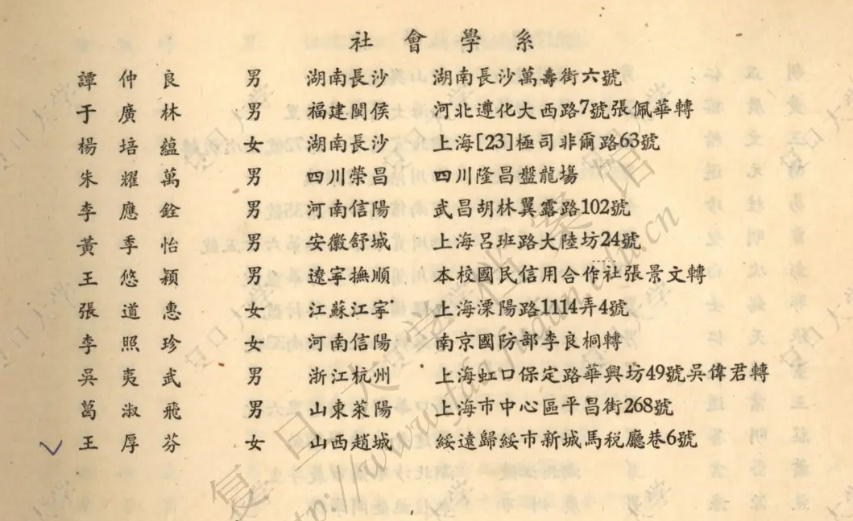 社會學系
譚仲良 男 湖南長沙 湖南長沙萬壽街六號
于廣林 男 福建閩侯 河北遵化大西路7號張佩華轉
楊培蘊 女 湖南長沙 上海[23]極司非爾路63號
朱耀萬 男 四川榮昌 四川隆昌盤龍場
李應銓 男 河南信陽 武昌胡林翼露路102號
黃季怡 男 安徽舒城 上海呂班路大陸坊24號
王悠穎 男 遼寧撫順 本校國民信用合作社張景文轉
張道惠 女 江蘇江寧 上海溧陽路1114弄4號
李照珍 女 河南信陽 南京國防部李良桐轉
吳夷武 男 浙江杭州 上海虹口保定路華興坊49號吳偉君轉
葛淑飛 男 山東萊陽 上海市中心區平昌街268號
王厚芬 女 山西趙城 綏遠歸綏市新城馬税廳巷6號
复旦大学档案馆